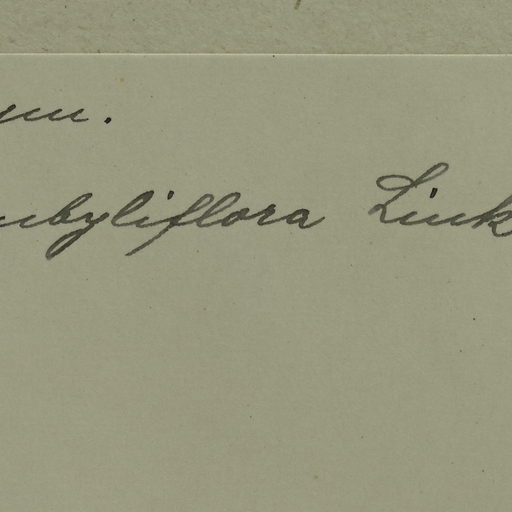 ym.
mbyliflora Link